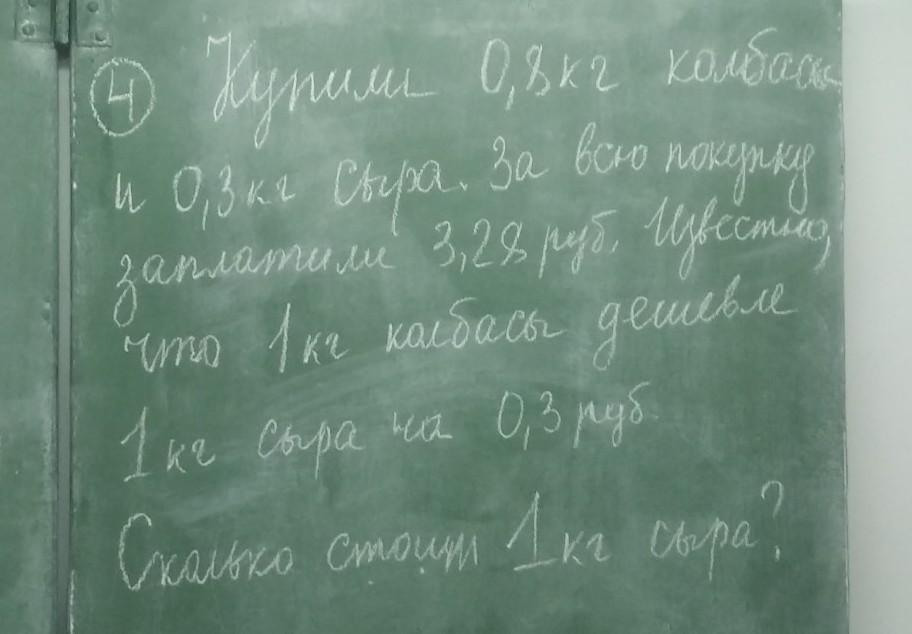 ④ Купили 0,8кг колбасы
и 0,3кг сыра. За всю покупку
заплатили 3,28 руб. Известно,
что 1кг колбасы дешевле
1кг сыра на 0,3 руб.
Сколько стоит 1кг сыра?